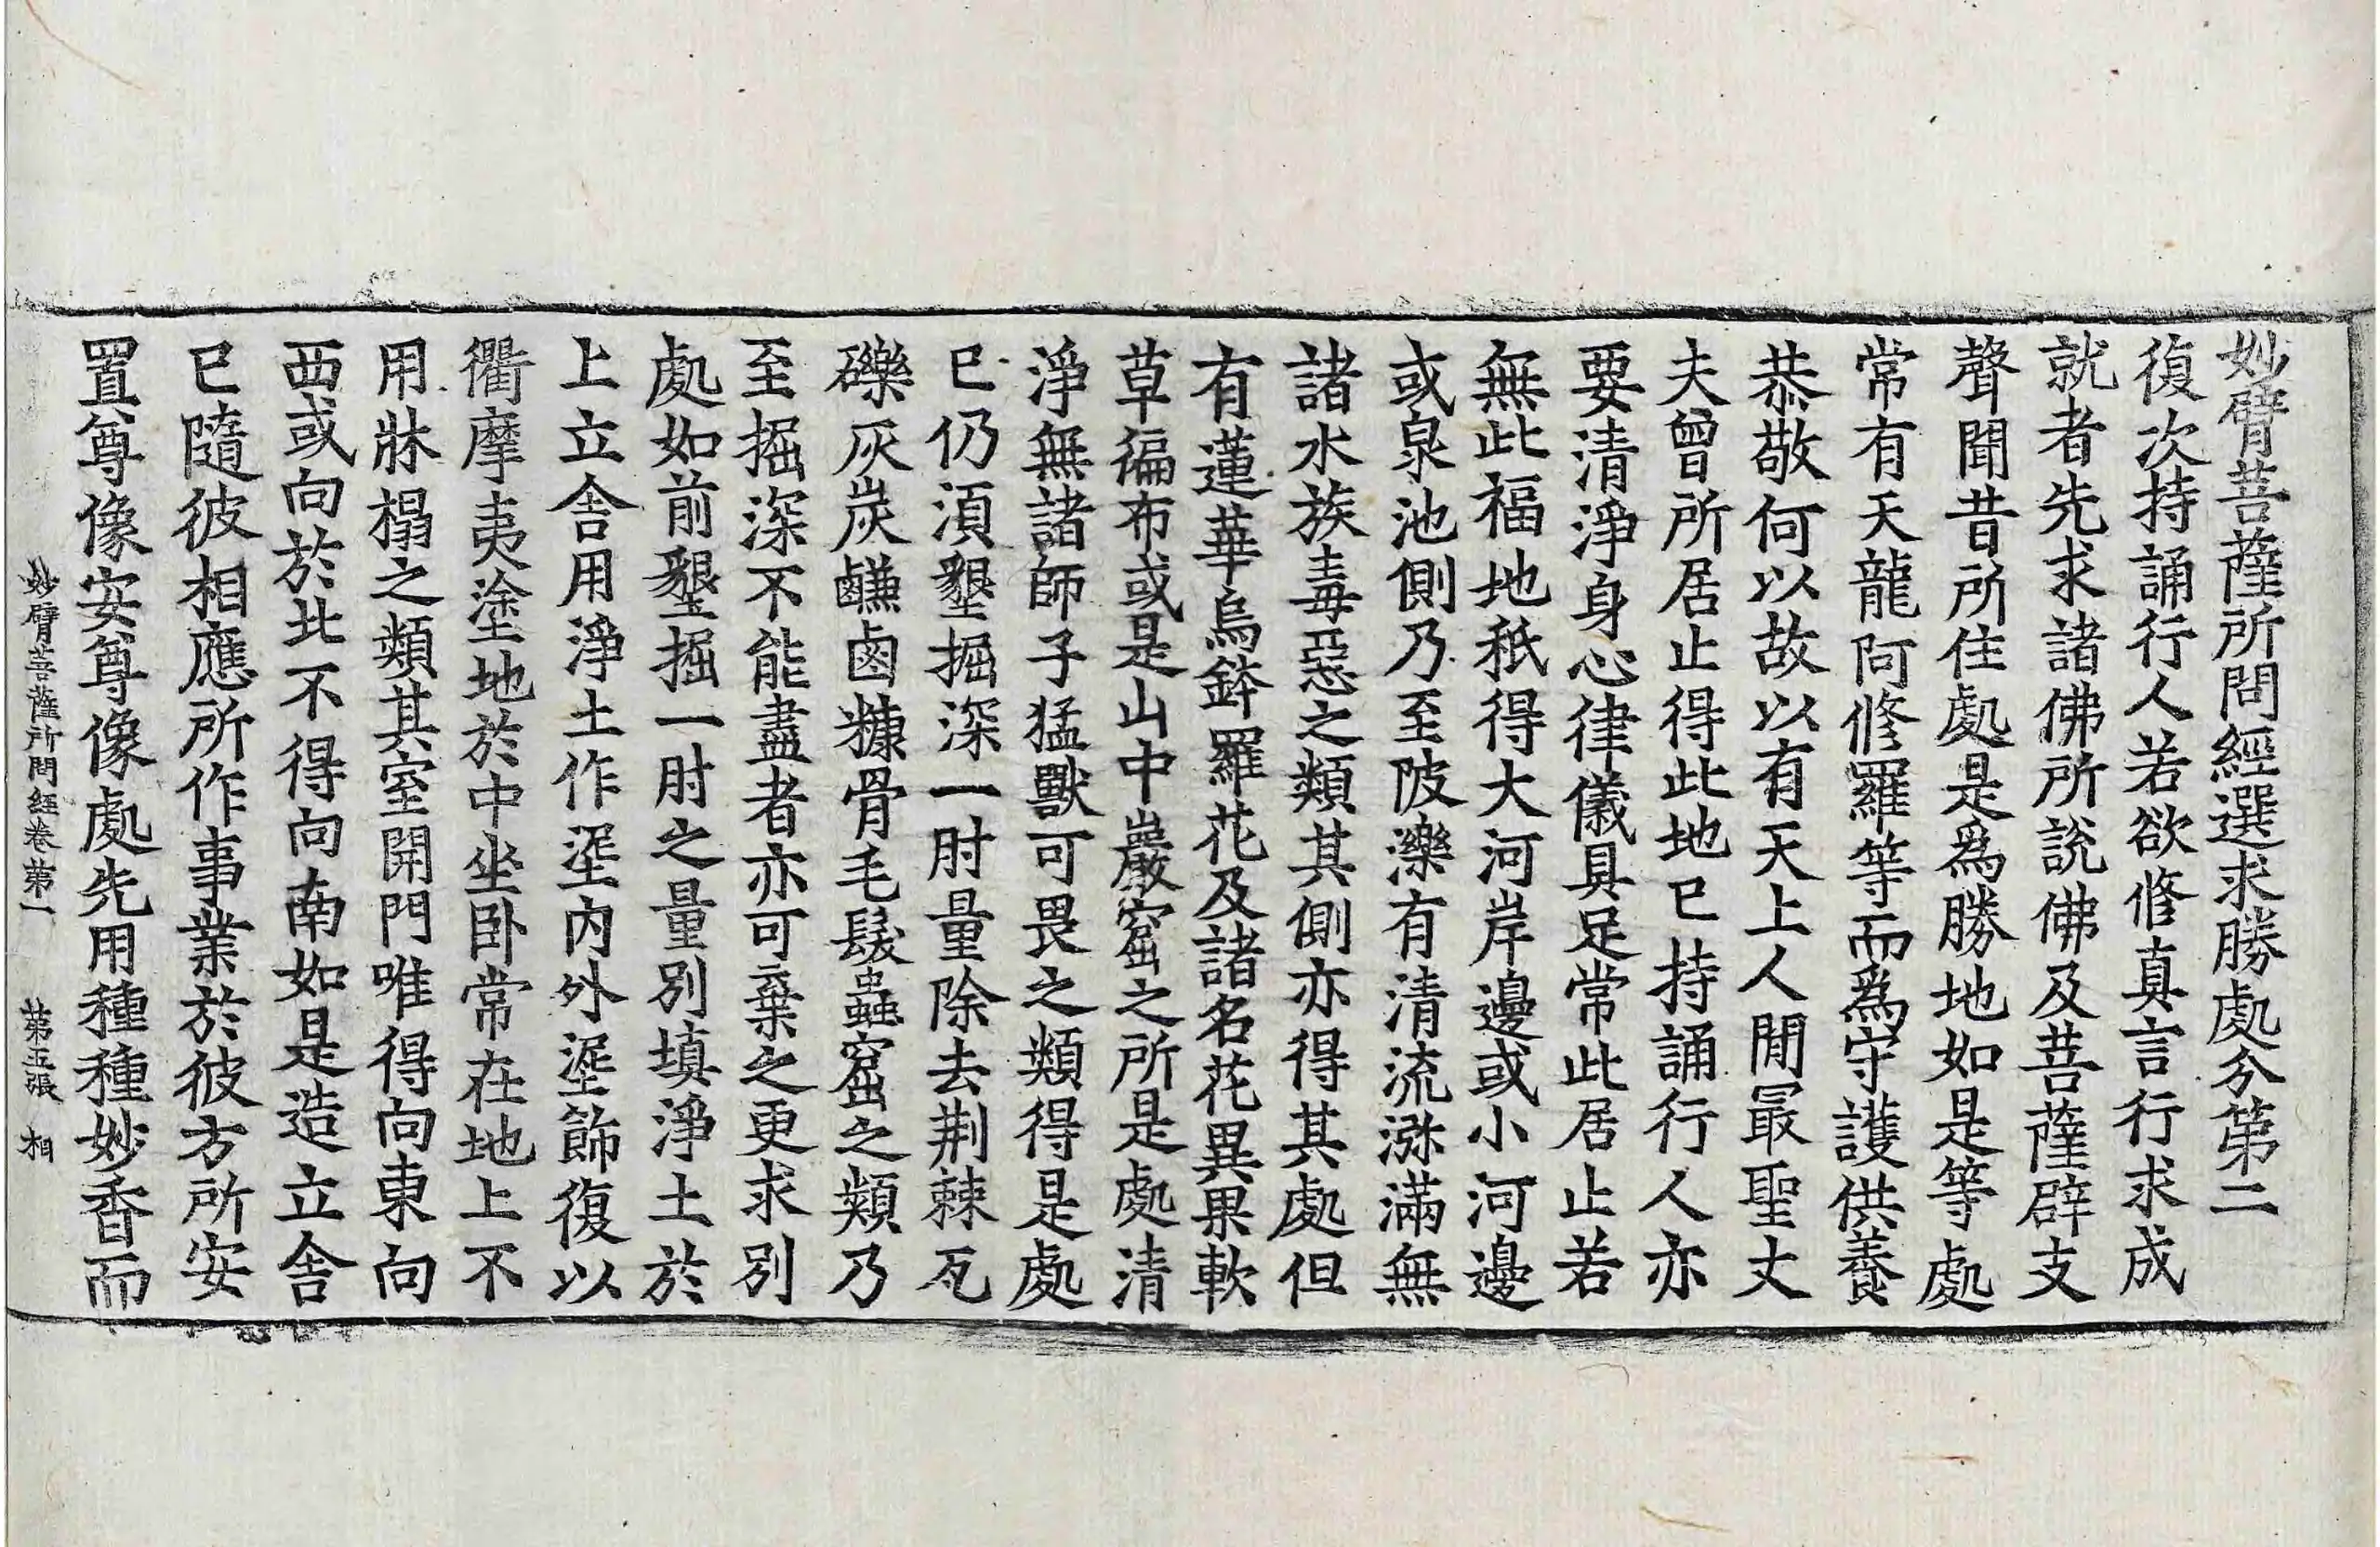 妙臂菩薩所問經選求勝處分第二
復次持誦行人若欲修真言行求成
就者先求諸佛所說佛及菩薩辟支
聲聞昔所住處是為勝地如是等處
常有天龍阿修羅等而為守護供養
恭敬何以故以有天上人間最聖丈
夫曾所居止得此地已持誦行人亦
要清淨身心律儀具足常此居止若
無此福地秖得大河岸邊或小河邊
或泉池側乃至陂濼有清流㳽滿無
諸水族毒惡之類其側亦得其處但
有蓮華烏鉢羅花及諸名花異果軟
草徧布或是山中巖窟之所是處清
淨無諸師子猛獸可畏之類得是處
已仍湏墾掘深一肘量除去荆棘瓦
礫灰炭鹻鹵糠骨毛髮蟲窟之類乃
至掘深不能盡者亦可棄之更求別
處如前墾掘一肘之量別填淨土於
上立舍用淨土作埿內外埿飾復以
衢摩夷塗地於中坐卧常在地上不
用牀榻之類其室開門唯得向東向
西或向於北不得向南如是造立舍
已隨彼相應所作事業於彼方所安
置尊像安尊像處先用種種妙香而
妙臂菩薩所問經卷第一 第五張 相